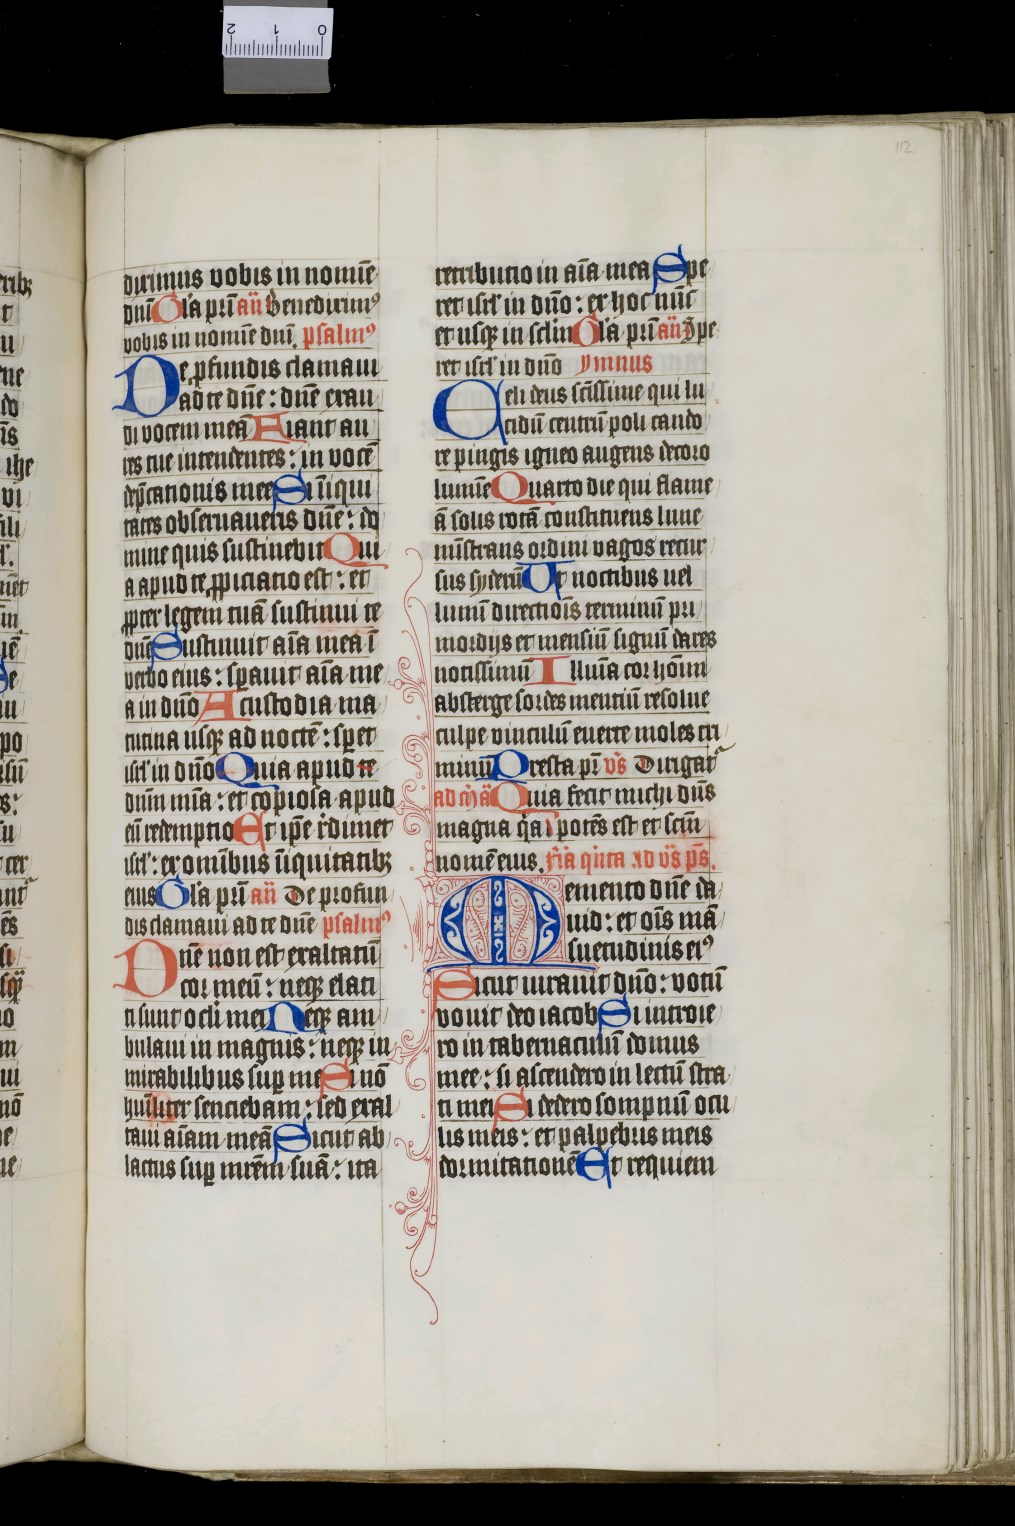 112
diximus vobis in nomīe
dn̄i Gl'a pr̄i an̄ Benediximꝰ
vobis in nomīe dn̄i. psalmꝰ
De ꝓfundis clamaui
ad te dn̄e : dn̄e exau
di vocem meā Fiant au
res tue intendentes : in vocē
dep̄cationis mee Si īiqui
tates obseruaueris dn̄e : do
mine quis sustinebit Qui
a apud te ꝓpiciatio est : et
ꝓpter legem tuā sustinui te
dn̄e Sustinuit aīa mea ī
verbo eius : sꝑauit aīa me
a in dn̄o A custodia ma
tutina usqꝫ ad noctē : sꝑet
isrl' in dn̄o Quia apud te
dn̄m mīa : et copiosa apud
eū redemptio Et ip̄e r̄dimet
isrl' : ex omībus īiquitatibꝫ
eius Gl'a pr̄i an̄ De profun
dis clamaui ad te dn̄e psalmꝰ
Dn̄e non est exaltatū
cor meū : neqꝫ elati
ti sunt oc̄li mei Neqꝫ am
bulaui in magnis : neqꝫ in
mirabilibus suꝑ me Si nō
hūiliter sentiebam : sed exal
taui aīam meā Sicut ab
lactus suꝑ mr̄em suā : ita
retributio in aīa mea Spe
ret isrl' in dn̄o : ex hoc nūc
et usqꝫ in sc̄lm Gl'a pr̄i an̄ Spe
ret isrl' in dn̄o ymnus
Celi deus sc̄issime qui lu
cidū centrū poli cando
re pingis igneo augens decoro
lumīe Quarto die qui flāme
ā solis rotā constituens lune
mīstrans ordini vagos recur
sus syderū Ut noctibus uel
lumī directiōis terminū pri
mordijs et mensiū signū dares
notissimū Illumīa cor hōim
absterge sordes mentiū resolue
culpe vinculū euerte moles cri
minū Presta pr̄ v̄s Dirigat᷑
ad m̄ a Quia fecit michi dn̄s
magna q̄a potēs est et scīm
nomē eius. Fīa qīta ad v̄s p̄s.
Memento dn̄e da
uid : et oīs mā
suetudinis eiꝰ
Sicut iurauit dn̄o : votū
vouit deo iacob Si introie
ro in tabernaculū domus
mee : si ascendero in lectū stra
ti mei Si dedero sompnū ocu
lis meis : et palpebris meis
dormitationē Et requiem